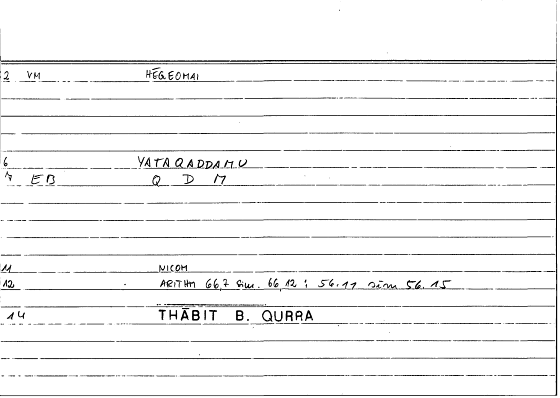 2 VM HĒGEOMAI
6 YATAQADDAMU
7 EB Q D M
11 NICOM
12 ARITHM 66,7 sim. 66,12 : 56.11 sim 56.15
14 THĀBIT B. QURRA